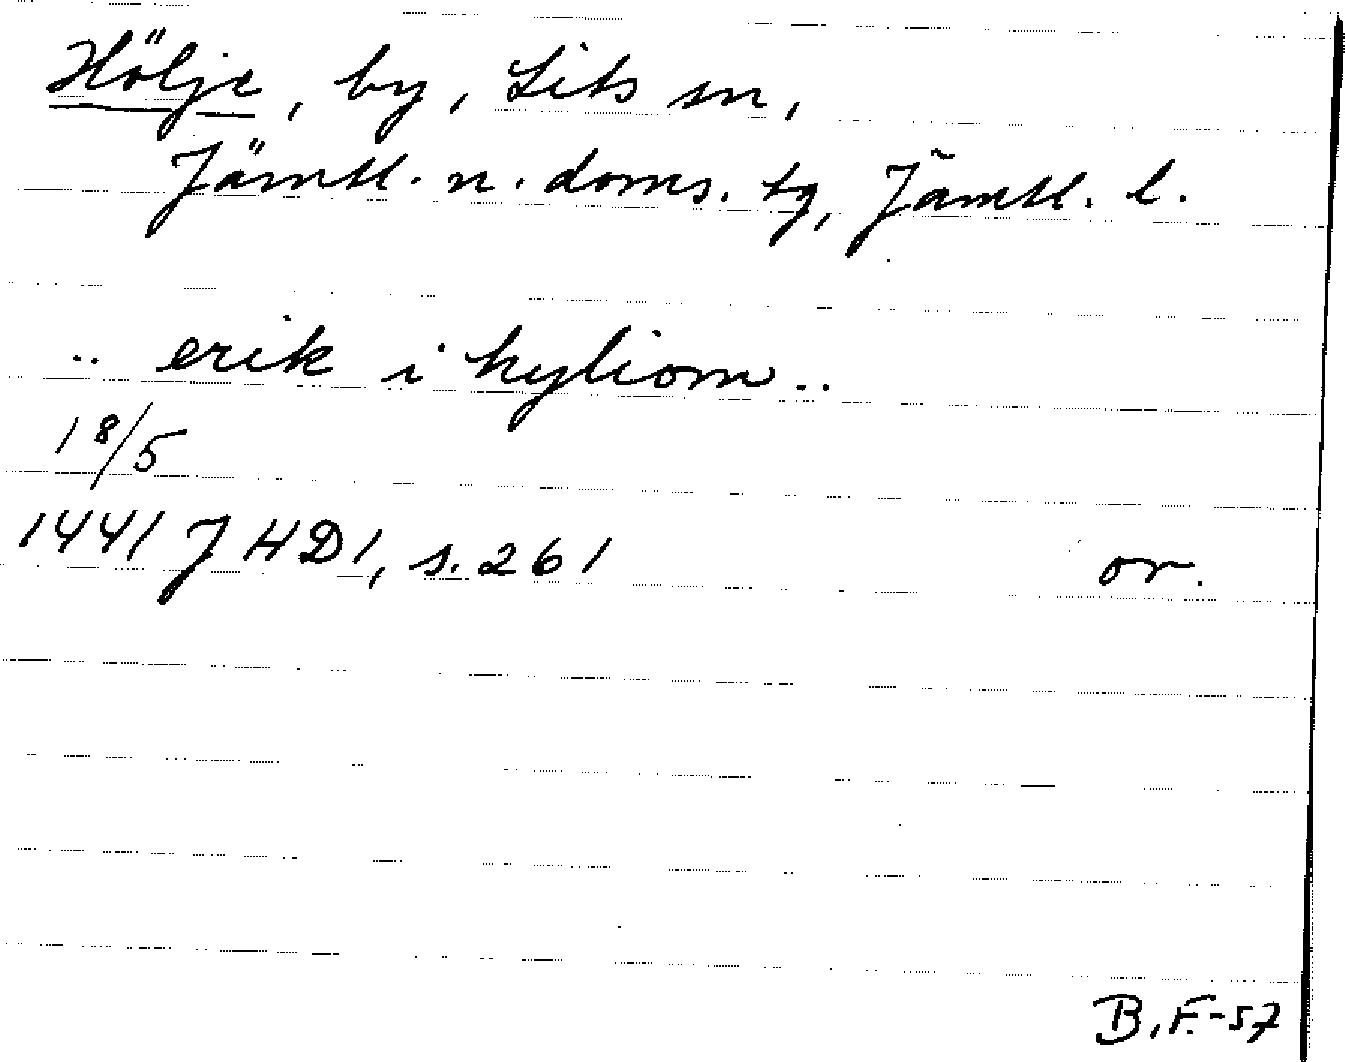 Hölje, by, Lits sn,
Jämtl. n. doms. tg, Jämtl. l.
.. erik i hyliom ..
18/5
1441 JHD1, s. 261 or.
B.F.-57